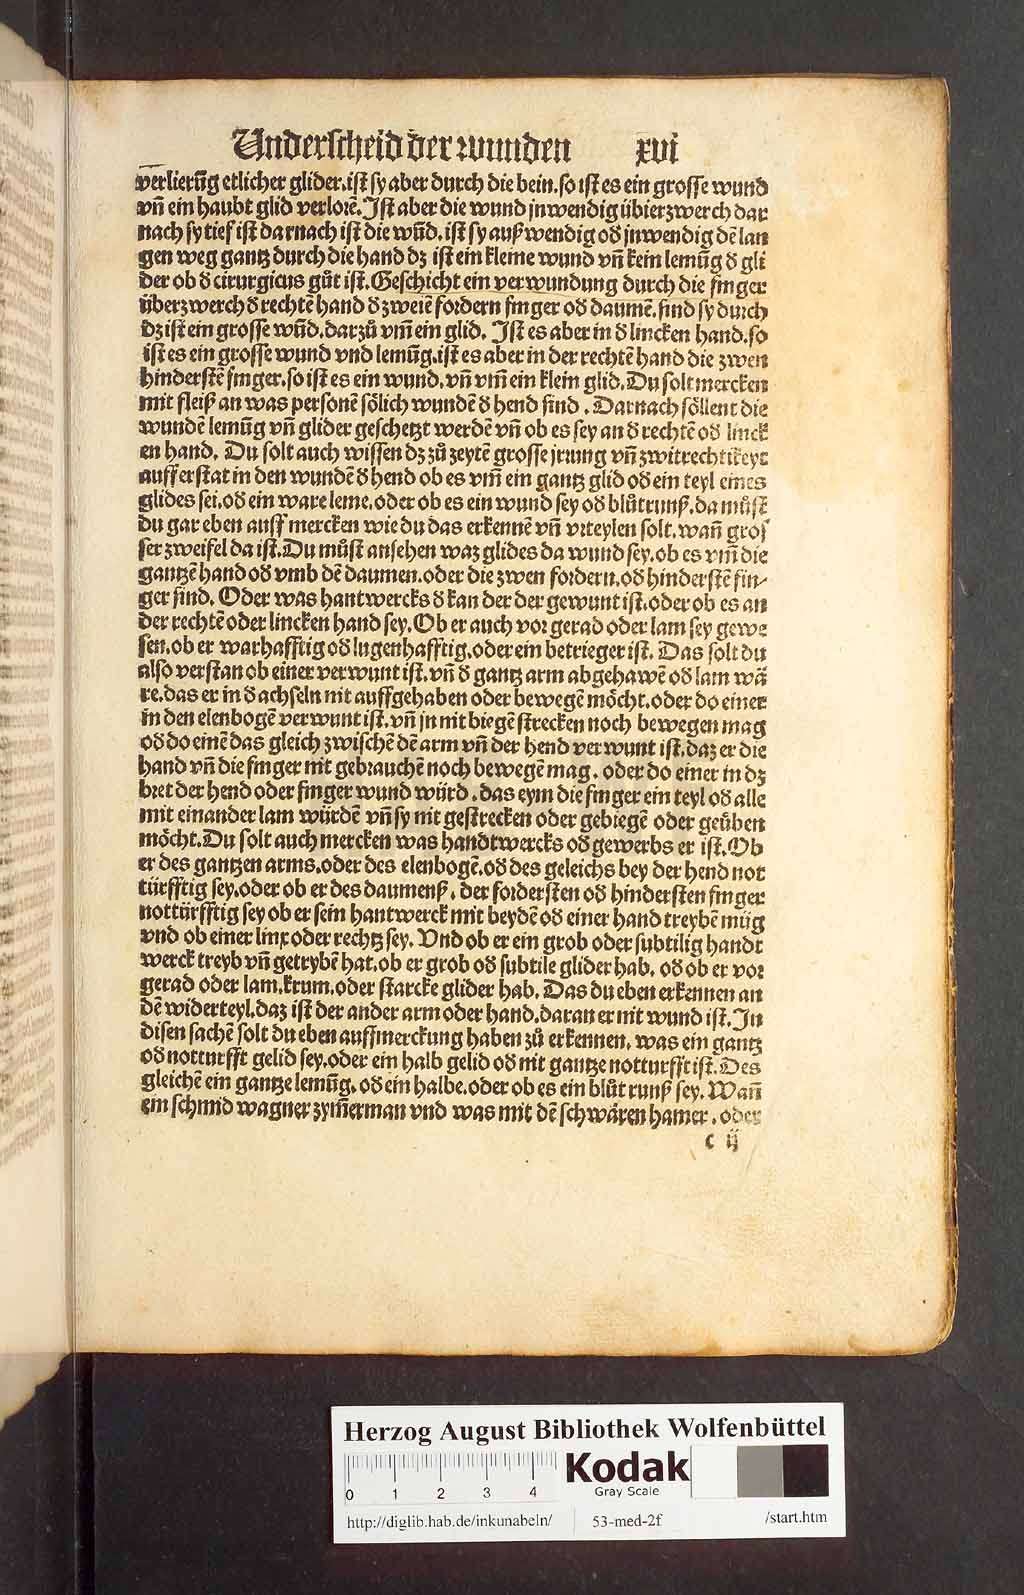 Underscheid der wunden xvi
verlierũg etlicher glider.ist sy aber durch die bein.so ist es ein grosse wund
vñ ein haubt glid verlorẽ.Ist aber die wund jnwendig übierzwerch dar
nach sy tief ist darnach ist die wũd.ist sy außwendig oð jnwendig dẽ lan
gen weg gantz durch die hand dz ist ein kleine wund vñ kein lemũg ð gli
der ob ð cirurgicus gůt ist.Geschicht ein verwundung durch die finger
überzwerch ð rechtẽ hand ð zweiẽ fordern finger oð daumẽ.sind sy durch
dz ist ein grosse wũd.darzů vm̃ ein glid. Ist es aber in ð lincken hand.so
ist es ein grosse wund vnd lemũg.ist es aber in der rechtẽ hand die zwen
hinderstẽ finger.so ist es ein wund.vñ vm̃ ein klein glid.Du solt mercken
mit fleiß an was personẽ sölich wundẽ ð hend sind.Darnach söllent die
wundẽ lemũg vñ glider geschetzt werdẽ vñ ob es sey an ð rechtẽ oð linck
en hand. Du solt auch wissen dz zů zeytẽ grosse jrrung vñ zwitrechtikeyt
aufferstat in den wundẽ ð hend ob es vm̃ ein gantz glid oð ein teyl eines
glides sei.oð ein ware leme.oder ob es ein wund sey oð blůtrunß.da můst
du gar eben auff mercken wie du das erkennẽ vñ vrteylen solt.wañ gros
ser zweifel da ist.Du můst ansehen waz glides da wund sey.ob es vm̃ die
gantzẽ hand oð vmb dẽ daumen.oder die zwen fordern.oð hinderstẽ fin-
ger sind. Oder was hantwercks ð kan der der gewunt ist.oder ob es an
der rechtẽ oder lincken hand sey.Ob er auch vor gerad oder lam sey gewe
sen.ob er warhafftig oð lugenhafftig.oder ein betrieger ist. Das solt du
also verstan ob einer verwunt ist.vñ ð gantz arm abgehawẽ oð lam wä
re.das er in ð achseln nit auffgehaben oder bewegẽ möcht.oder do einer
in den elenbogẽ verwunt ist.vñ jn nit biegẽ strecken noch bewegen mag
oð do einẽ das gleich zwischẽ dẽ arm vñ der hend verwunt ist.daz er die
hand vñ die finger nit gebrauchẽ noch bewegẽ mag. oder do einer in dz
bret der hend oder finger wund würd.das eym die finger ein teyl oð alle
mit einander lam würdẽ vñ sy nit gestrecken oder gebiegẽ oder geüben
möcht.Du solt auch mercken was handtwercks oð gewerbs er ist.Ob
er des gantzen arms.oder des elenbogẽ.oð des geleichs bey der hend not
türfftig sey.oder ob er des daumenß. der fordersten oð hindersten finger
nottürfftig sey ob er sein hantwerck mit beydẽ oð einer hand treybẽ müg
vnd ob einer linx oder rechtz sey. Vnd ob er ein grob oder subtilig handt
werck treyb vñ getrybẽ hat.ob er grob oð subtile glider hab. oð ob er vor
gerad oder lam.krum.oder starcke glider hab. Das du eben erkennen an
dẽ widerteyl.daz ist der ander arm oder hand.daran er nit wund ist.In
disen sachẽ solt du eben auffmerckung haben zů erkennen. was ein gantz
oð notturfft gelid sey.oder ein halb gelid oð nit gantze notturfft ist.Des
gleichẽ ein gantze lemũg.oð ein halbe.oder ob es ein blůt runß sey. Wañ
ein schmid wagner zym̃erman vnd was mit dẽ schwären hamer.oder
c ij
Herzog August Bibliothek Wolfenbüttel
0 1 2 3 4 Kodak
Gray Scale
http://diglib.hab.de/inkunabeln/ 53-med-2f /start.htm